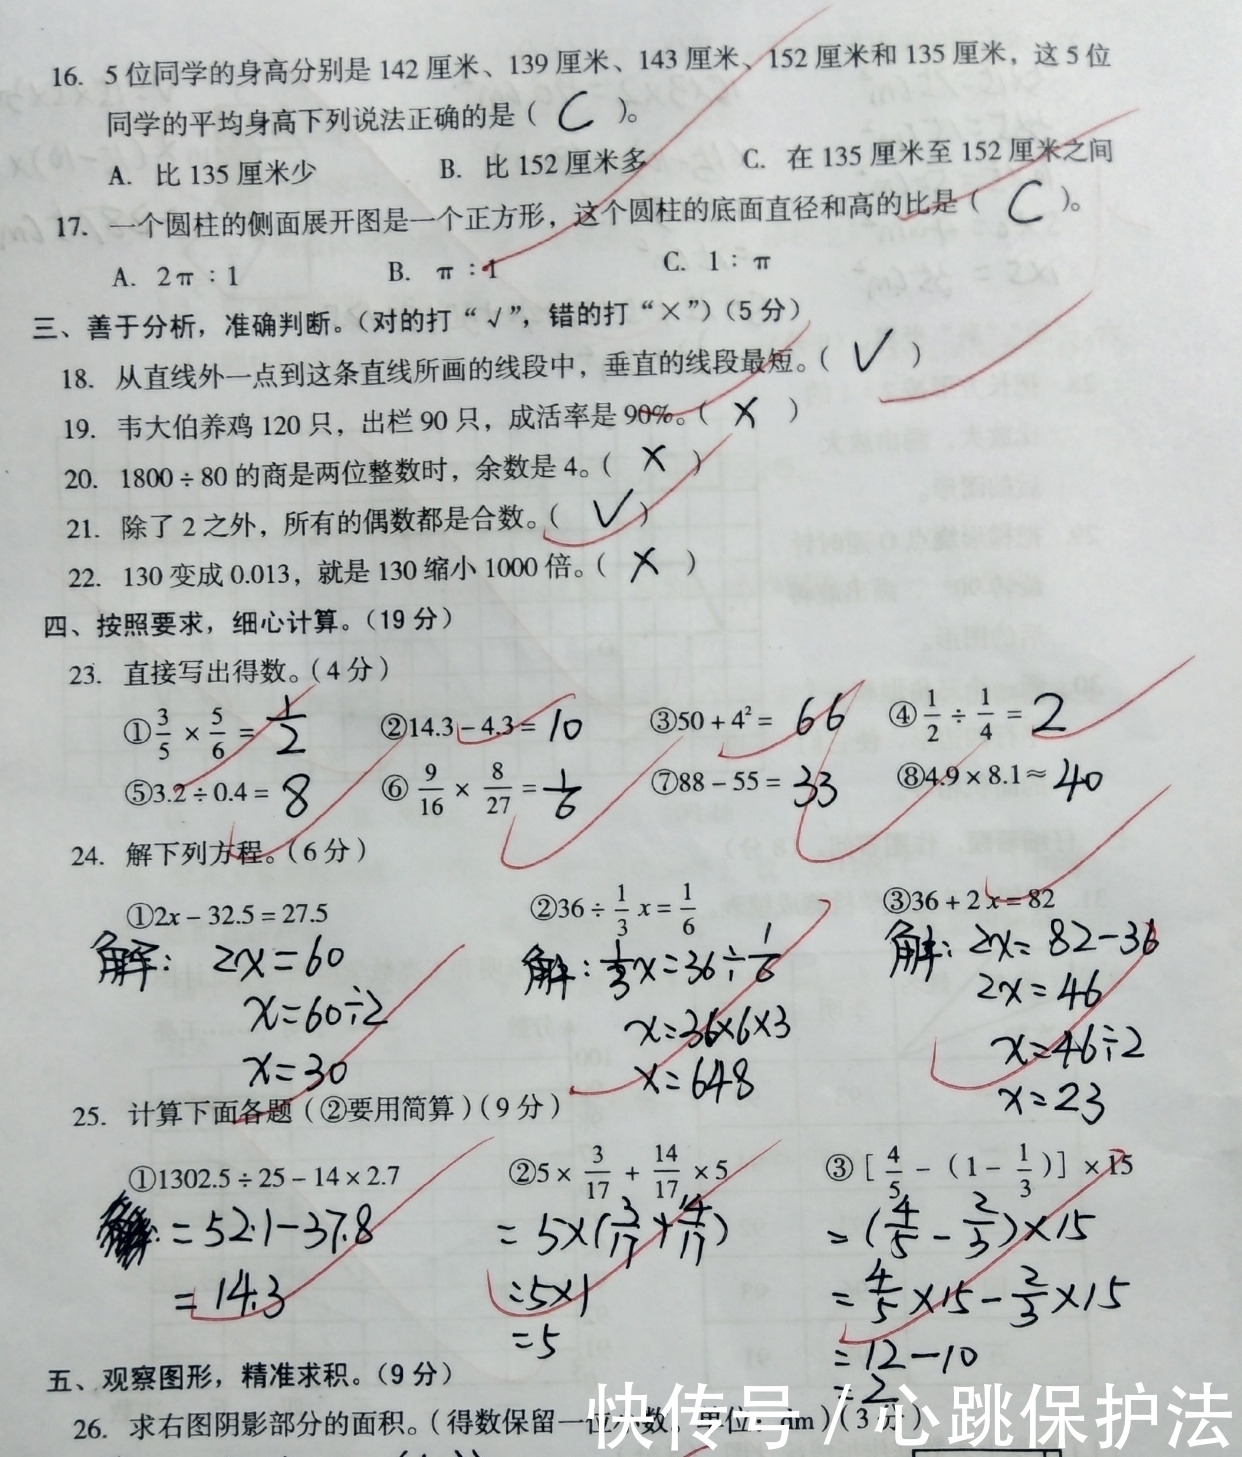 16. 5位同学的身高分别是142厘米、139厘米、143厘米、152厘米和135厘米，这5位
同学的平均身高下列说法正确的是（ C ）。
A. 比135厘米少 B. 比152厘米多 C. 在135厘米至152厘米之间
17. 一个圆柱的侧面展开图是一个正方形，这个圆柱的底面直径和高的比是（ C ）。
A. 2π：1 B. π：1 C. 1：π
三、善于分析，准确判断。（对的打“√”，错的打“×”）（5分）
18. 从直线外一点到这条直线所画的线段中，垂直的线段最短。（ √ ）
19. 韦大伯养鸡120只，出栏90只，成活率是90%。（ × ）
20. 1800÷80的商是两位整数时，余数是4。（ × ）
21. 除了2之外，所有的偶数都是合数。（ √ ）
22. 130变成0.013，就是130缩小1000倍。（ × ）
四、按照要求，细心计算。（19分）
23. 直接写出得数。（4分）
①3/5×5/6= 1/2 ②14.3-4.3= 10 ③50+4²= 66 ④1/2÷1/4= 2
⑤3.2÷0.4= 8 ⑥9/16×8/27= 1/6 ⑦88-55= 33 ⑧4.9×8.1≈ 40
24. 解下列方程。（6分）
①2x-32.5=27.5 ②36÷1/3x=1/6 ③36+2x=82
解：2x=60 解：1/3x=36÷1/6 解：2x=82-36
x=60÷2 x=36×6×3 2x=46
x=30 x=648 x=46÷2
x=23
25. 计算下面各题（②要用简算）（9分）
①1302.5÷25-14×2.7 ②5×3/17+14/17×5 ③[4/5-(1-1/3)]×15
=52.1-37.8 =5×(3/17+14/17) =(4/5-2/3)×15
=14.3 =5×1 =4/5×15-2/3×15
=5 =12-10
=2
五、观察图形，精准求积。（9分）
26. 求右图阴影部分的面积。（得数保留一位小数。单位：dm）（3分）
快传号/心跳保护法